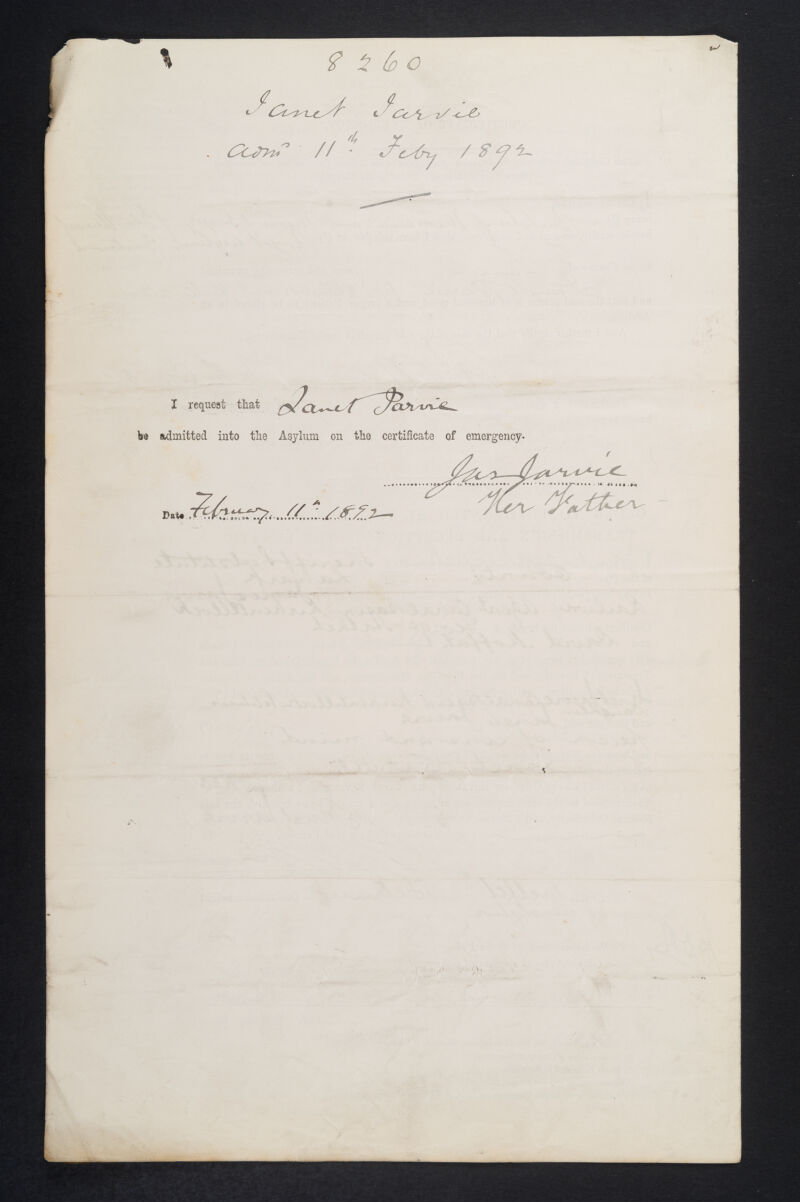 8260
Janet Jarvie
Admd 11th Feby 1892
I request that Janet Jarvie
be admitted into the Asylum on the certificate of emergency.
Jas Jarvie
Her Father
Date February 11th 1892